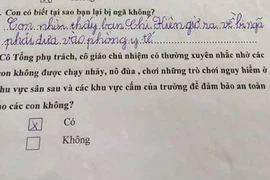 . Con có biết tại sao bạn lại bị ngã không?
Con nhìn thấy bạn Chi Hiên giờ ra về bị ngã
phải đưa vào phòng y tế
Cô Tổng phụ trách, cô giáo chủ nhiệm có thường xuyên nhắc nhở các
con không được chạy nhảy, nô đùa , chơi những trò chơi nguy hiểm ở
khu vực sân sau và các khu vực cấm của trường để đảm bảo an toàn
cho các con không?
X Có
Không